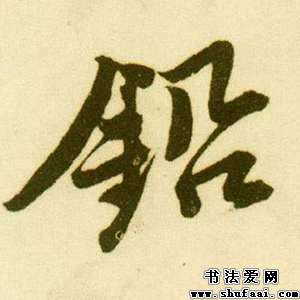 鉛
书法爱网
www.shufaai.com